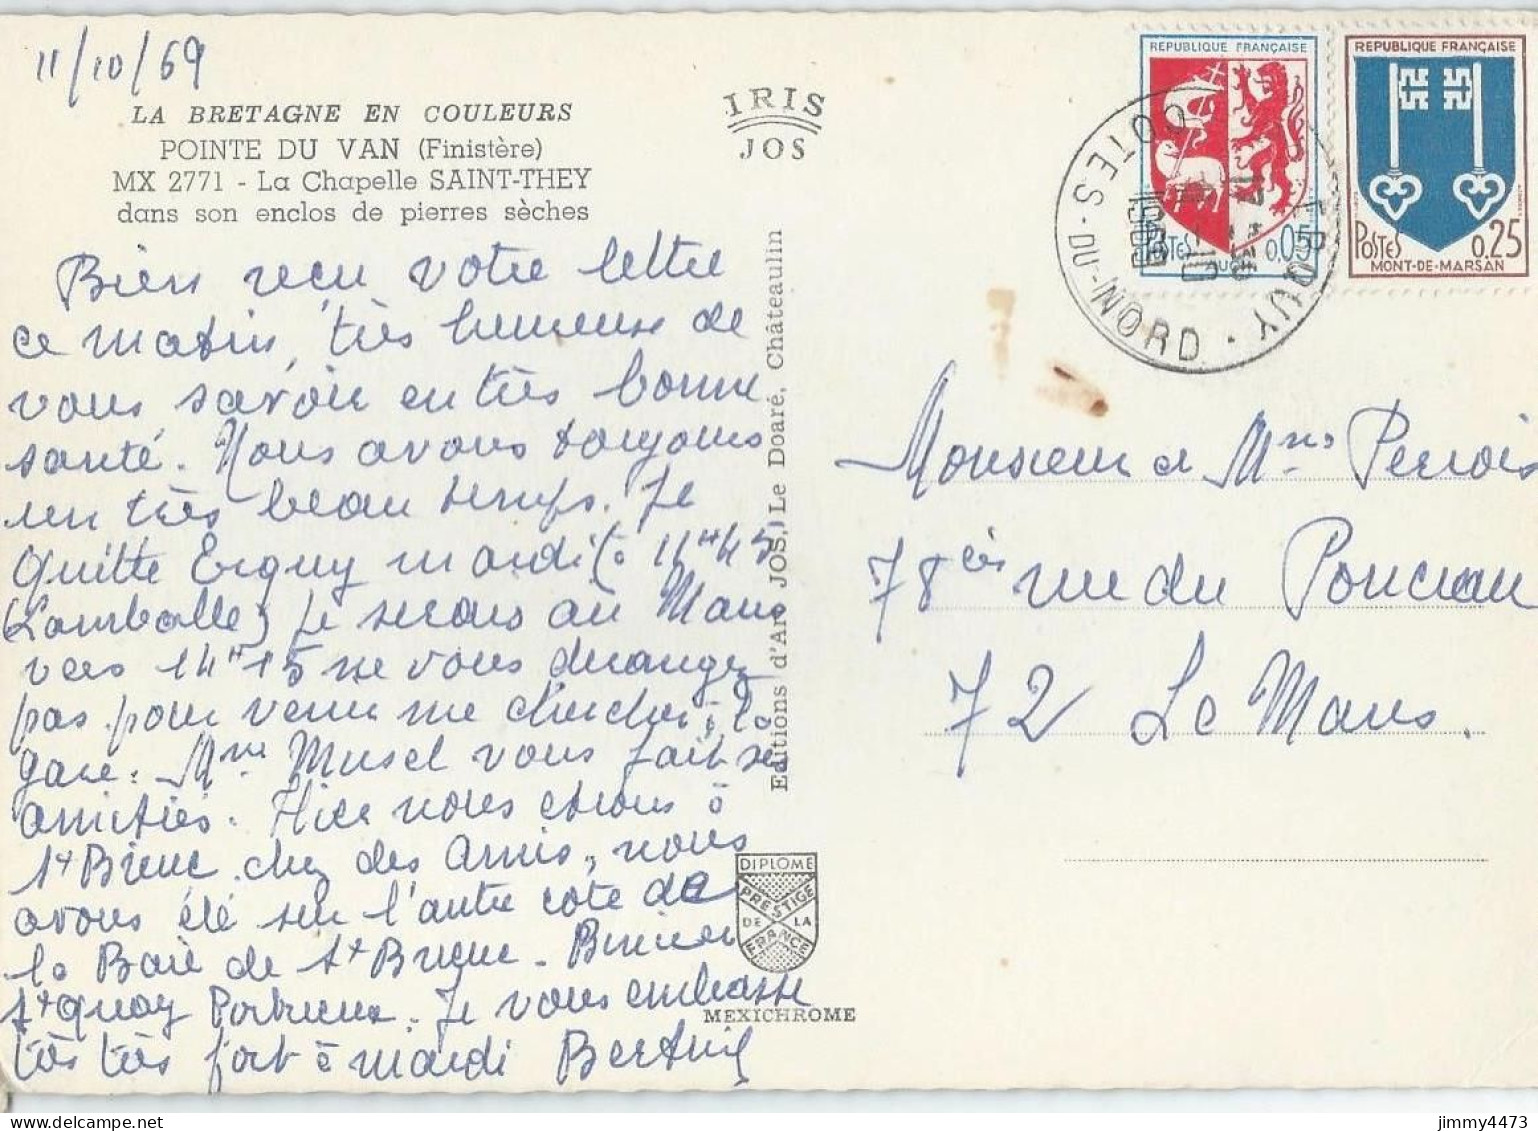 11/10/69
LA BRETAGNE EN COULEURS
POINTE DU VAN (Finistère)
MX 2771 - La Chapelle SAINT-THEY
dans son enclos de pierres sèches
Bien recu votre lettre
ce matin, très heureuse de
vous savoir en très bonne
santé. Nous avons toujours
un très beau temps. Je
quitte Erquy mardi (à 11H45
(Lamballe) Je serais au Mans
vers 14H15 ne vous derangez
pas pour venir me chercher à la
gare. Mme Musel vous fait ses
amitiés. Hier nous étions à
St Brieuc chez des Amis, nous
avons été sur l'autre côté de
la Baie de St Brieuc. Binic
St Quay Portrieux. Je vous embrasse
très très fort à mardi
IRIS
JOS
Editions d'Art JOS, Le Doaré, Châteaulin
DIPLOME
PRESTIGE
DE LA
FRANCE
MEXICHROME
REPUBLIQUE FRANÇAISE
POSTES 0,05
AUCH
REPUBLIQUE FRANÇAISE
POSTES 0,25
MONT-DE-MARSAN
ERQUY
COTES-DU-NORD
1969
Monsieur et Mme
78 bis rue du
72 Le Mans.
jimmy4473